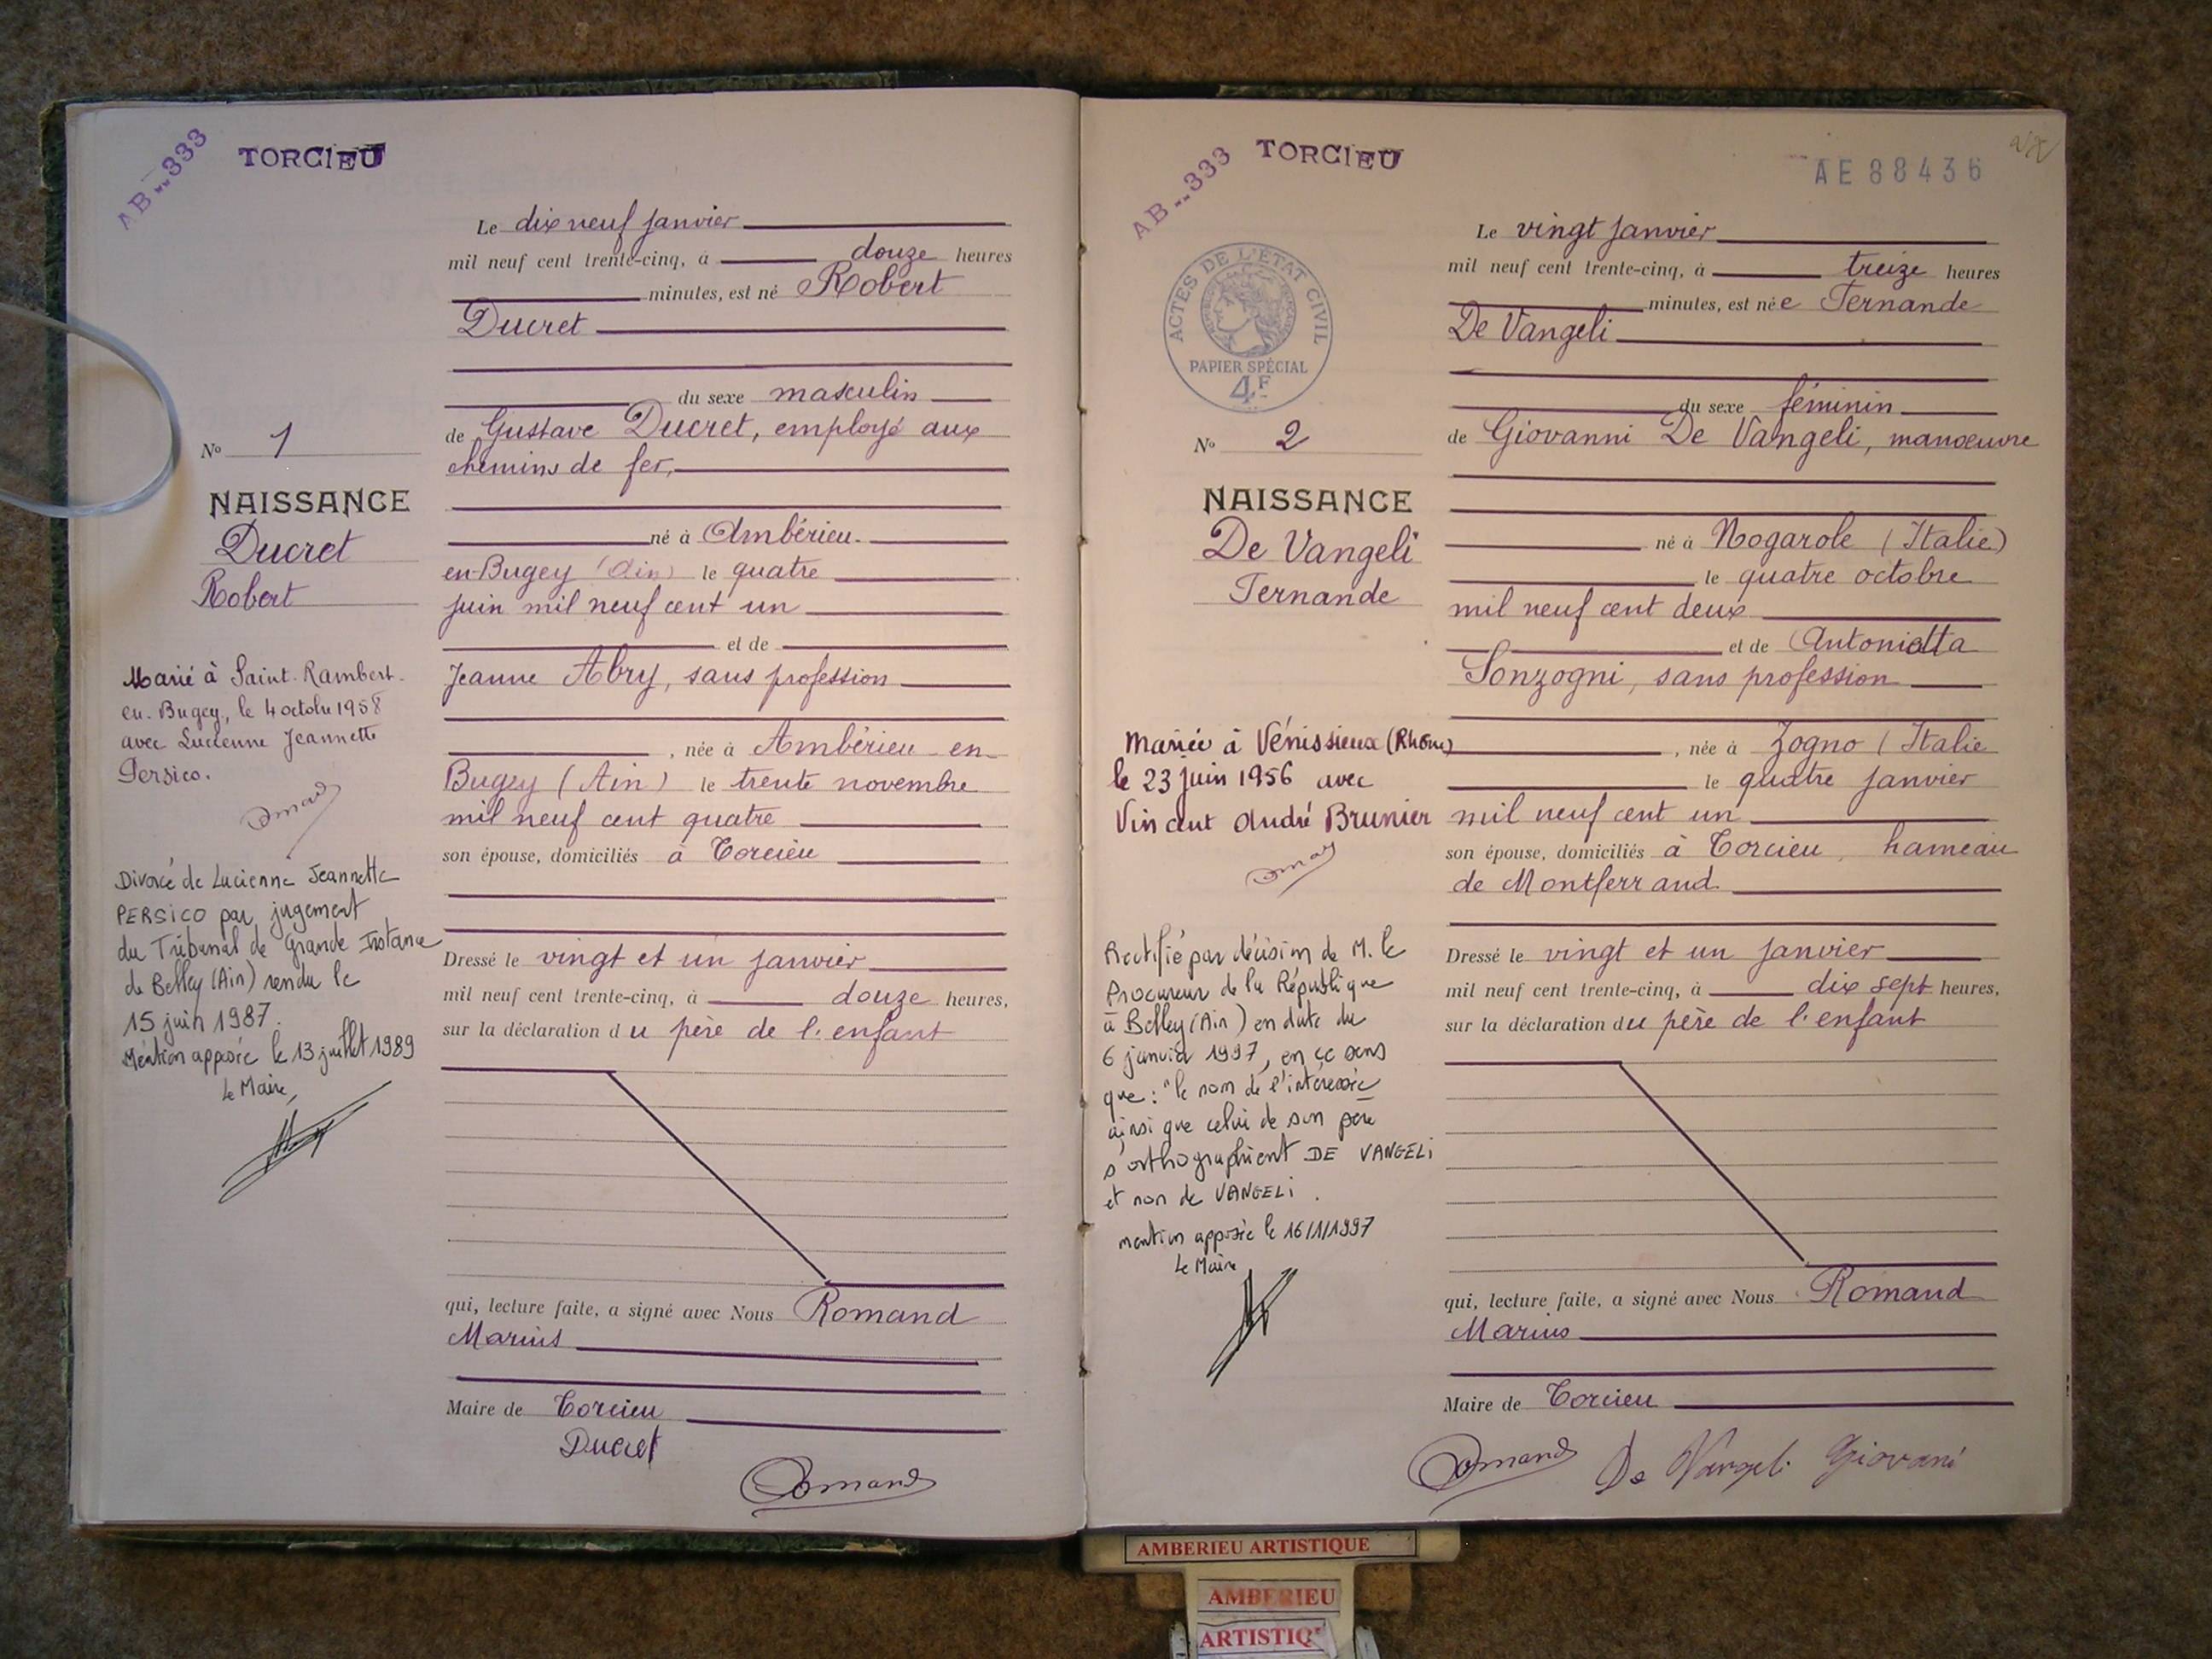 AB..333
TORCIEU
Le dix neuf janvier
mil neuf cent trente-cinq, à douze heures
minutes, est né Robert
Ducret
du sexe masculin
de Gustave Ducret, employé aux
chemins de fer,
né à Ambérieu-
en-Bugey (Ain) le quatre
juin mil neuf cent un
et de
Jeanne Abry, sans profession
, née à Ambérieu-en-
Bugey (Ain) le trente novembre
mil neuf cent quatre
son épouse, domiciliés à Torcieu
Dressé le vingt et un janvier
mil neuf cent trente-cinq, à douze heures,
sur la déclaration du père de l'enfant
qui, lecture faite, a signé avec Nous Romand
Marius
Maire de Torcieu
Ducret
Romand
No 1
NAISSANCE
Ducret
Robert
Marié à Saint-Rambert-
en-Bugey, le 4 octobre 1958
avec Lucienne Jeannette
Persico.
Divorcé de Lucienne Jeannette
PERSICO par jugement
du Tribunal de Grande Instance
de Belley (Ain) rendu le
15 juin 1987.
Mention apposée le 13 juillet 1989
Le Maire,
AB..333
TORCIEU
AE 88436
ACTES DE L'ÉTAT CIVIL
PAPIER SPÉCIAL
4F
Le vingt janvier
mil neuf cent trente-cinq, à treize heures
minutes, est née Fernande
De Vangeli
du sexe féminin
de Giovanni De Vangeli, manœuvre
né à Nogarole (Italie)
le quatre octobre
mil neuf cent deux
et de Antonietta
Sonzogni, sans profession
, née à Zogno (Italie
le quatre janvier
mil neuf cent un
son épouse, domiciliés à Torcieu, hameau
de Montferrand.
Dressé le vingt et un janvier
mil neuf cent trente-cinq, à dix sept heures,
sur la déclaration du père de l'enfant
qui, lecture faite, a signé avec Nous Romand
Marius
Maire de Torcieu
Romand De Vangeli Giovani
No 2
NAISSANCE
De Vangeli
Fernande
Mariée à Vénissieux (Rhône)
le 23 juin 1956 avec
Vincent André Brunier
Rectifié par décision de M. le
Procureur de la République
à Belley (Ain) en date du
6 janvier 1997, en ce sens
que : "le nom de l'intéressée
ainsi que celui de son père
s'orthographient DE VANGELI
et non de VANGELI.
mention apposée le 16/1/1997
Le Maire
AMBERIEU ARTISTIQUE
AMBERIEU
ARTISTIQ